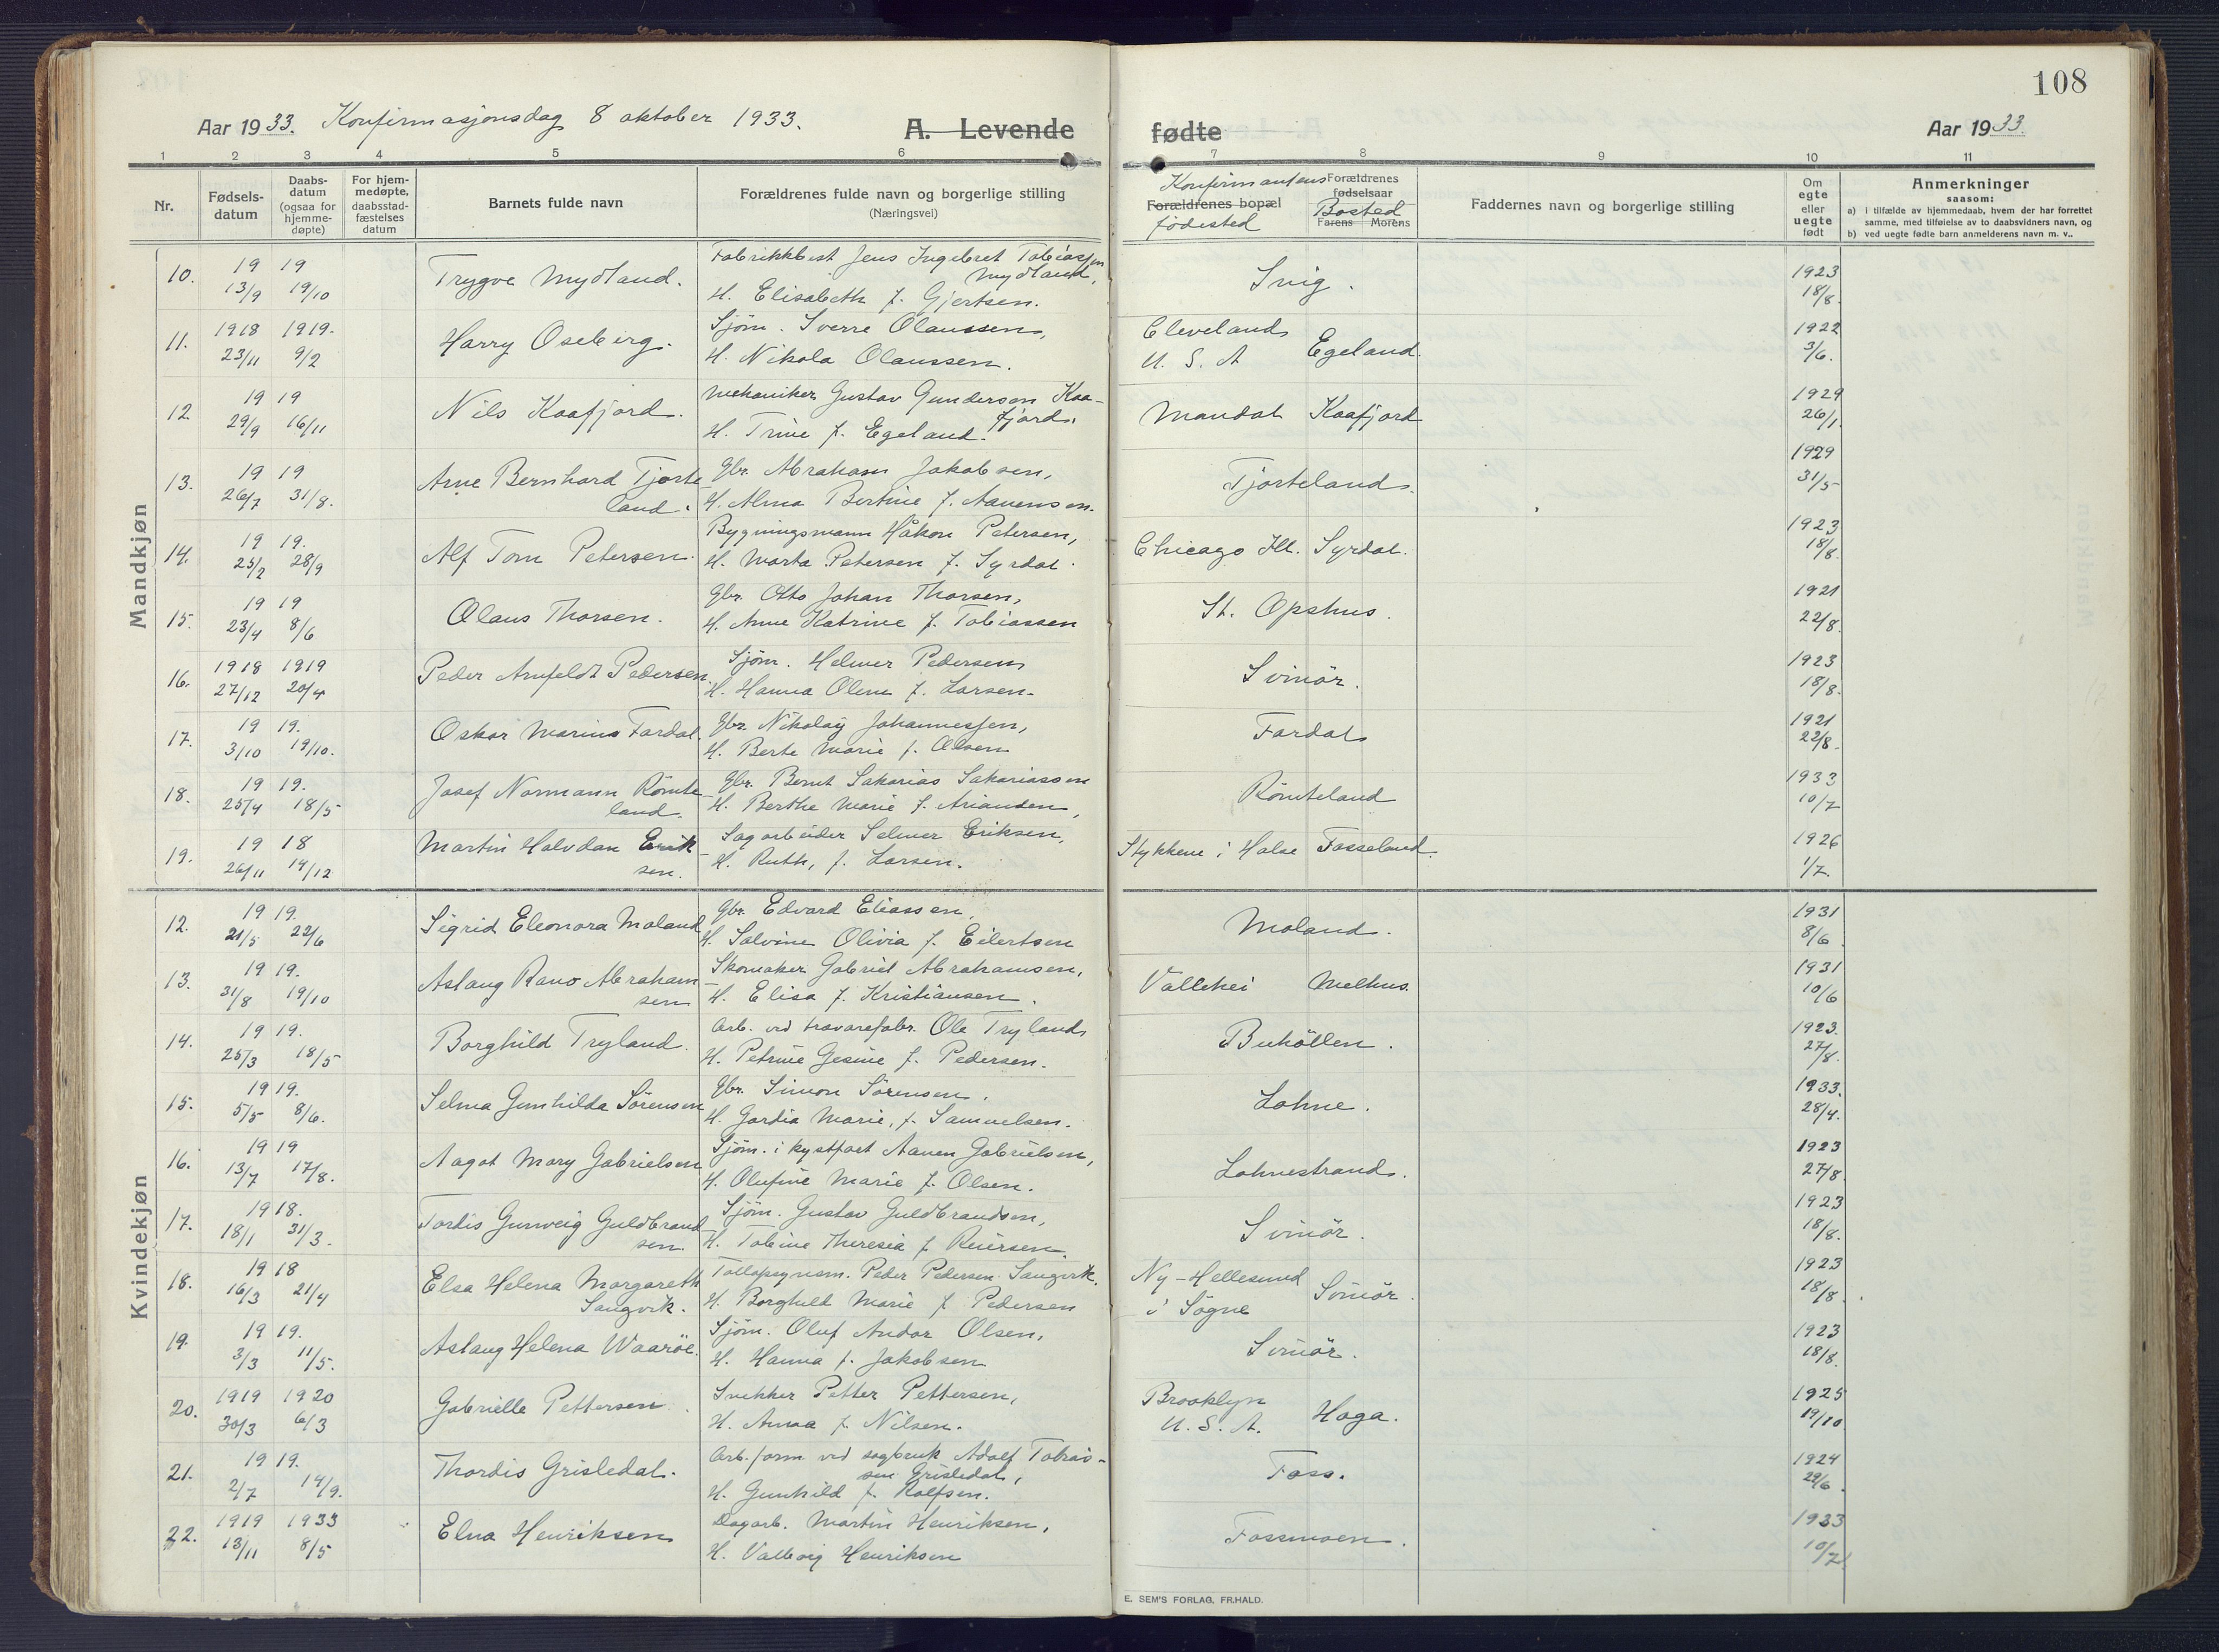 108
Aar 1933. Konfirmasjonsdag 8 oktober 1933. A. Levende fødte Aar 1933.
1 2 3 4 5 6 7 8 9 10 11
Nr.
Fødsels-
datum
Daabs-
datum
(ogsaa for
hjemme-
døpte)
For hjem-
medøpte,
daabsstad-
fæstelses
datum
Barnets fulde navn
Forældrenes fulde navn og borgerlige stilling
(Næringsvei)
Konfirmantens
Forældrenes bopæl
födested
Forældrenes
fødselsaar
Bosted
Farens Morens
Faddernes navn og borgerlige stilling
Om
egte
eller
uegte
født
Anmerkninger
saasom:
a) i tilfælde av hjemmedaab, hvem der har forrettet
samme, med tilføielse av to daabsvidners navn, og
b) ved uegte fødte barn anmelderens navn m. v..
Mandkjøn
10. 19 19 13/9 19/10 Trygve Mydland. Fabrikkbest Jens Ingebret Tobiassen
Mydland,
H. Elisabeth f. Gjertsen. Svig. 1923 18/8.
11. 1918 1919. 23/11 9/2 Harry Oseberg. Sjöm. Sverre Olaussen,
H. Nikola Olaussen. Cleveland U. S. A Egeland. 1922 3/6.
12. 19 19 29/9 16/11 Nils Kaafjord. Mekaniker Gustav Gundersen Kaa-
fjord.
H. Trine f. Egeland. Mandal Kaafjord 1929 26/1.
13. 19 19 26/7 31/8. Arne Bernhard Tjorte-
land. Gbr. Abraham Jakobsen,
H. Alma Bertine f. Aanensen. Tjorteland. 1929 31/5
14. 19 19. 25/2 28/9 Alf Tom Petersen. Bygningsmann Håkon Petersen,
H. Marta Petersen f. Syrdal. Chicago Ill. Syrdal. 1923 18/8.
15. 19 19 23/4 8/6 Olaus Thorsen. Gbr. Otto Johan Thorsen,
H. Anne Katrine f. Tobiassen St. Opshus. 1921 22/8.
16. 1918 1919 27/12 20/4 Peder Arnfeldt Pedersen. Sjöm. Helmer Pedersen
H. Hanna Oline f. Larsen. Svinör. 1923 18/8.
17. 19 19. 3/10 19/10. Oskar Marius Fardal. Gbr. Nikolay Johannessen,
H. Berte Marie f. Olsen Fardal 1921 22/8.
18. 19 19. 25/4 18/5 Josef Normann Römte-
land. Gbr. Bernt Sakarias Sakariassen
H. Berthe Marie f. Arianden, Römteland 1933 10/7
19. 19 18 26/11 14/12 Martin Halvdan Erik-
sen. Sagarbeider Selmer Eriksen,
H. Ruth, f. Larsen. Stykkene i Halse Fasseland. 1926 1/7.
Kvindekjøn
12. 19 19. 21/5 22/6 Sigrid Eleonora Moland Gbr. Edvard Eliassen,
H. Salvine Olivia f. Eilertsen Moland. 1931 8/6
13. 19 19. 31/8 19/10 Aslaug Rano Abraham-
sen Skomaker Gabriel Abrahamsen,
H. Elisa f. Kristiansen. Vallehei Melhus. 1931 10/6
14. 19 19. 25/3 18/5 Borghild Tryland. Arb. ved travarefabr. Ole Tryland
H. Petrine Gesine f. Pedersen. Buhöllen. 1923. 27/8.
15. 19 19. 5/5 8/6. Selma Gunhilda Sörensen Gbr. Simon Sörensen,
H. Gardia Marie, f. Samuelsen. Lohne. 1933. 28/4.
16. 19 19 13/7 17/8. Aagot Mary Gabrielsen Sjöm. i kystfart Aanen Gabrielsen,
H. Olufine Marie f. Olsen. Lohnestrand. 1923 27/8
17. 19 18. 18/1 31/3. Tordis Gunveig Guldbrand-
sen. Sjöm. Gustav Guldbrandsen,
H. Tobine Theresia f. Reiersen. Svinör. 1923 18/8.
18. 19 18 16/3 21/4 Elsa Helena Margareth
Sangvik. Tollopsynsm. Peder Pedersen Sangvik,
H. Borghild Marie f Pedersen Ny-Hellesund
i Sögne Svinör. 1923 18/8.
19. 19 19. 3/3 11/5. Aslaug Helena Waaröe. Sjöm. Oluf Andor Olsen,
H. Hanna f. Jakobsen Svinör. 1923 18/8.
20. 1919 1920 30/3 6/3 Gabrielle Pettersen. Snekker Petter Pettersen,
H. Anna f. Nilsen. Brooklyn
U. S. A. Haga. 1925 19/10
21. 19 19. 2/7 14/9. Thordis Grisledal. Arb. form. ved sagbruk Adolf Tobias-
sen Grisledal,
H. Gunhild f. Rolfsen. Foss. 1924 29/6.
22. 1919 1933 13/11 8/5 Elna Henriksen Dagarb. Martin Henriksen,
H. Valborg Henriksen Fossmoen. 1933 10/7
E. SEM'S FORLAG, FR.HALD.